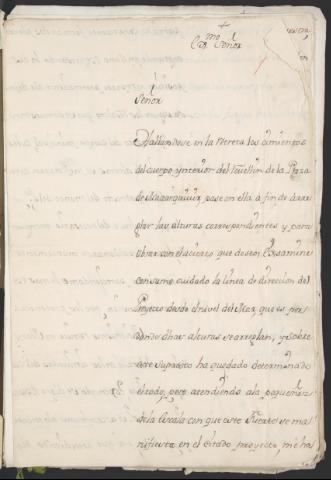 +
Exmo Señor
Señor
Hallandose en la Vereta los cimientos
del cuerpo ynterior del Revellin de la Plaza
de pase en ella a fin de arre
glar las alturas correspondientes y para
obrar con el acierto que deseo, Exsamine
con sumo cuidado la linea de direccion del
Proyecto desde el nivel del Mar, que es por
donde dhas alturas se arreglan, y sobre
este supuesto ha quedado determinado
el todo, pero atendiendo a la pequeñez
de la Escala con que este se ma
nifiesta en el Citado proyecto, me ha